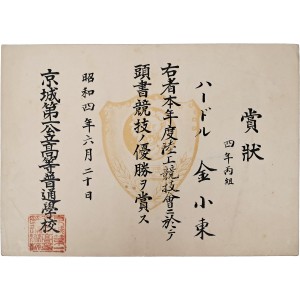 賞狀
四年丙組
ハードル 金小東
右者本年度陸上競技會ニ於テ
頭書競技ノ優勝ヲ賞ス
昭和四年六月二十日
京城第一公立高等普通學校